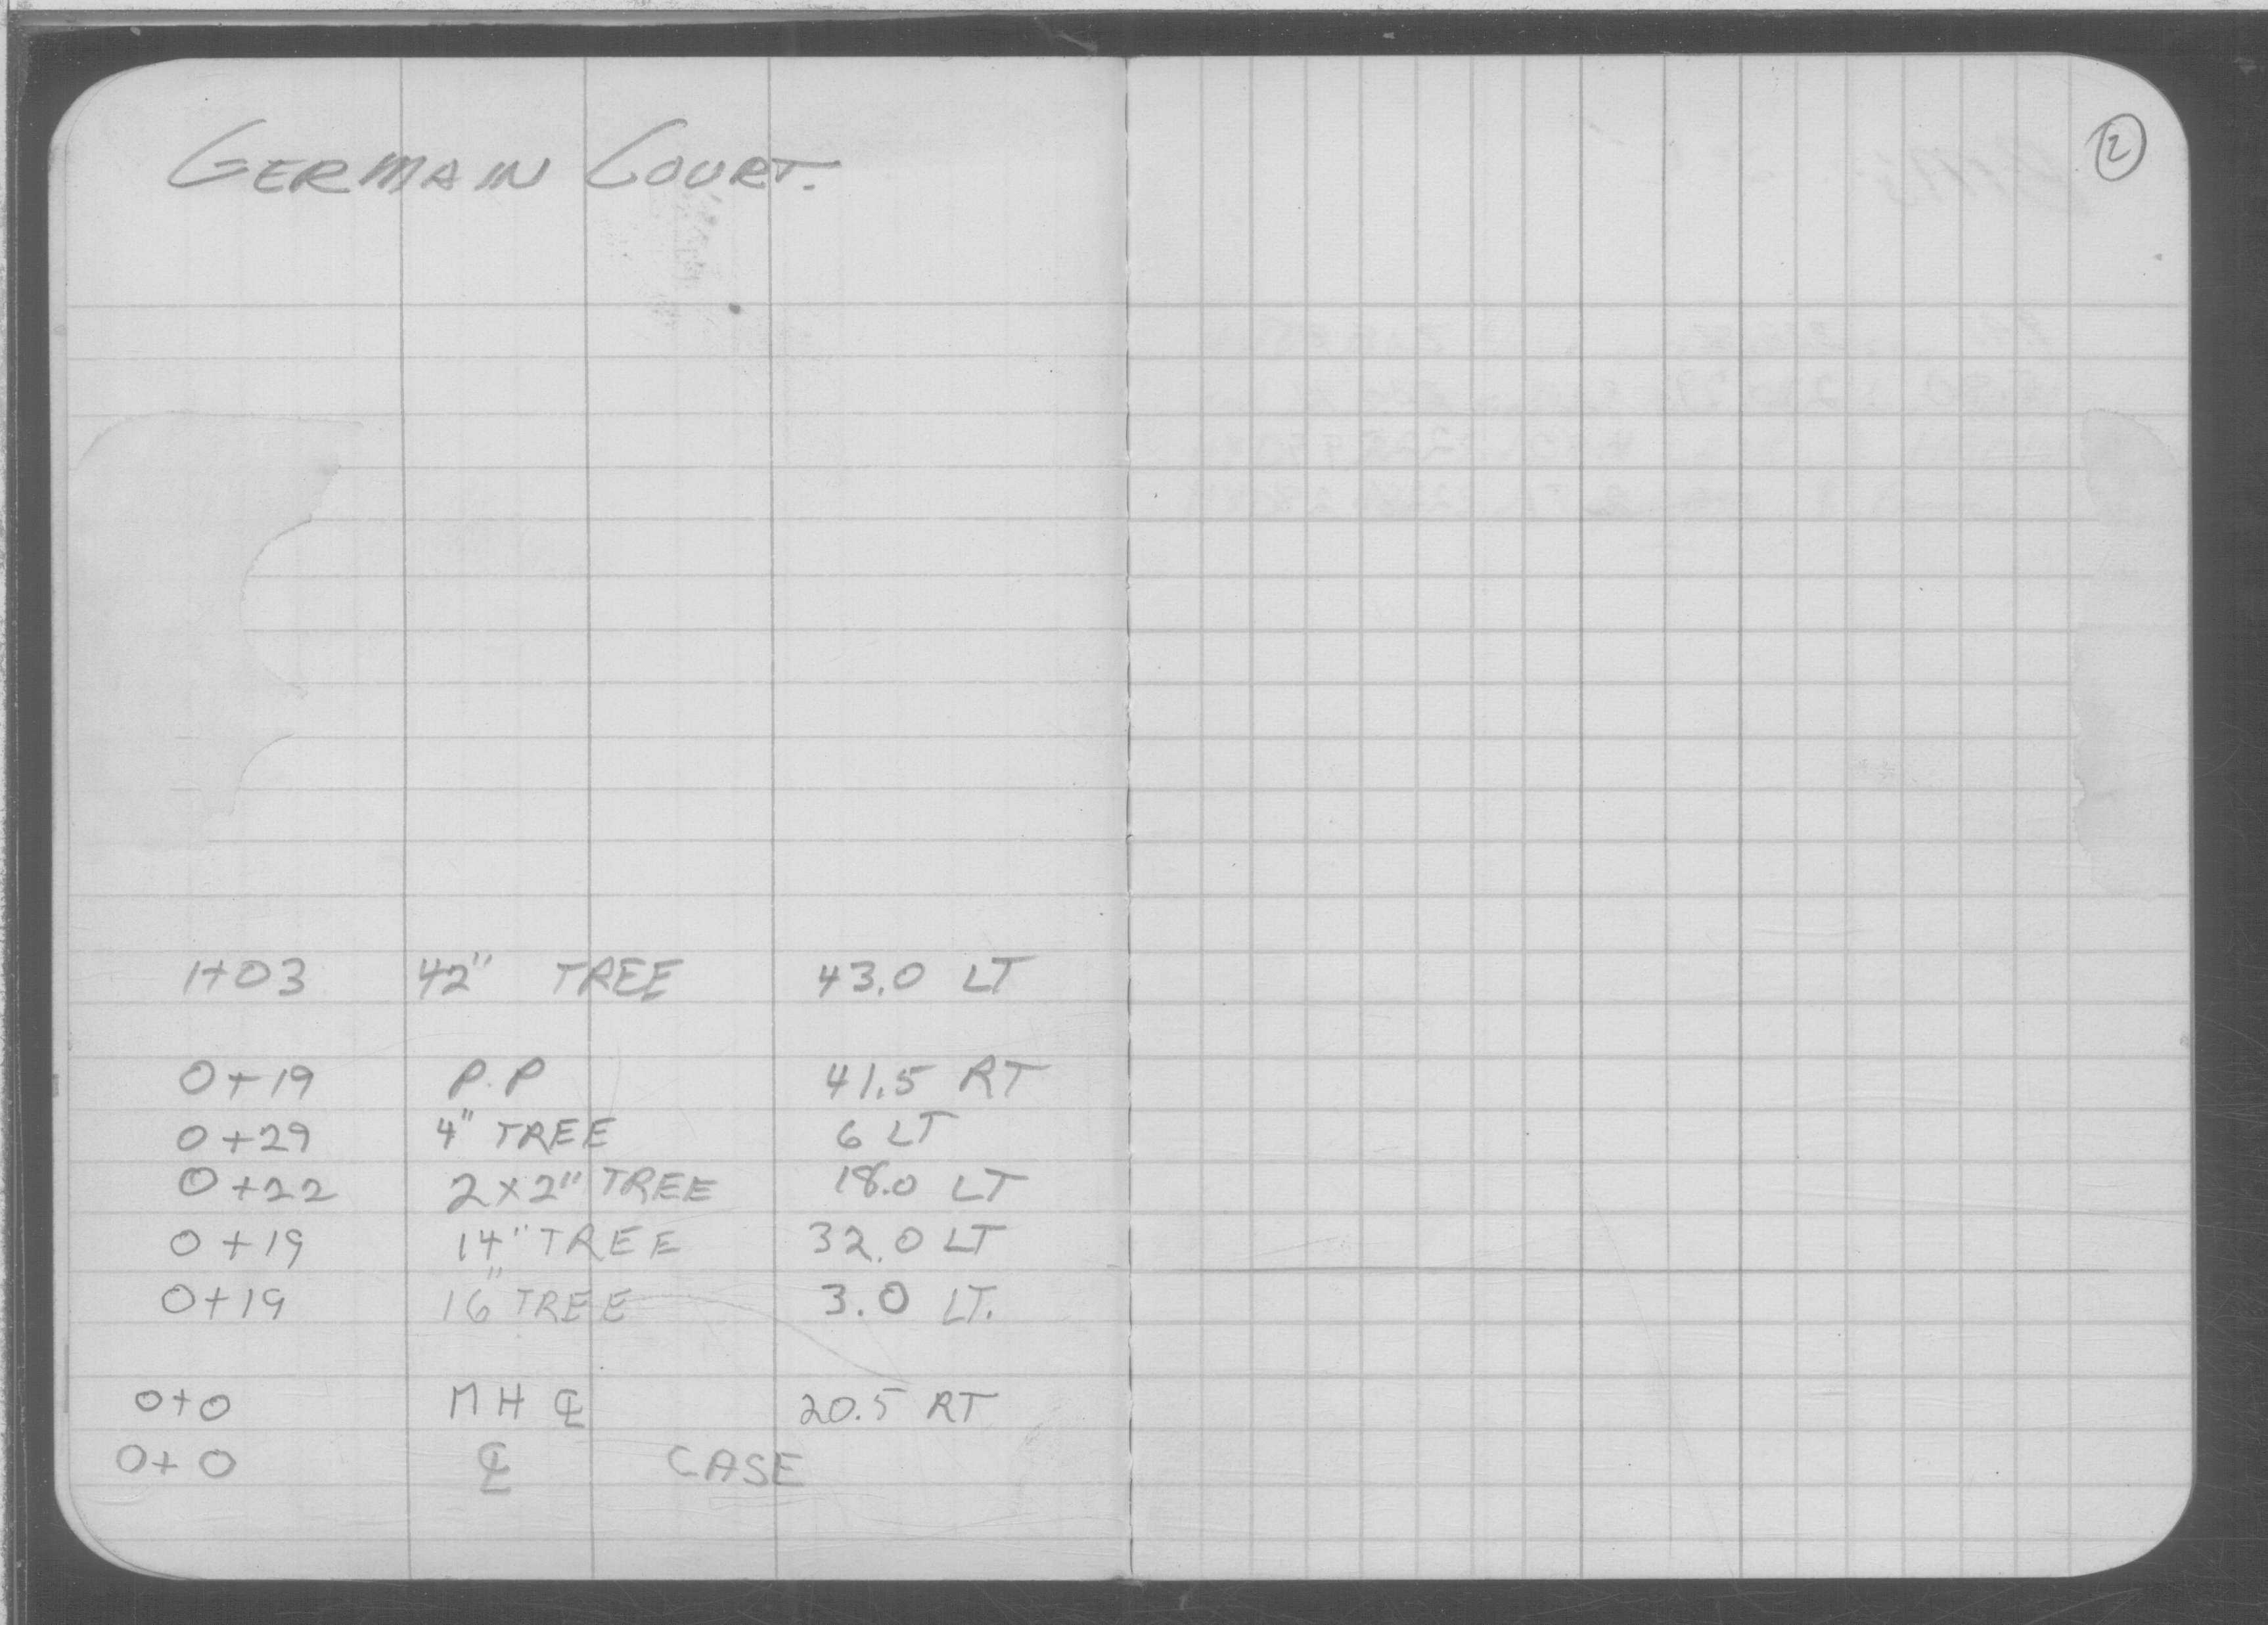 GERMAIN COURT.
2
1+03 42" TREE 43.0 LT
0+19 P.P 41.5 RT
0+29 4" TREE 6 LT
0+22 2x2" TREE 18.0 LT
0+19 14" TREE 32.0 LT
0+19 16" TREE 3.0 LT.
0+0 MH ℄ 20.5 RT
0+0 ℄ CASE